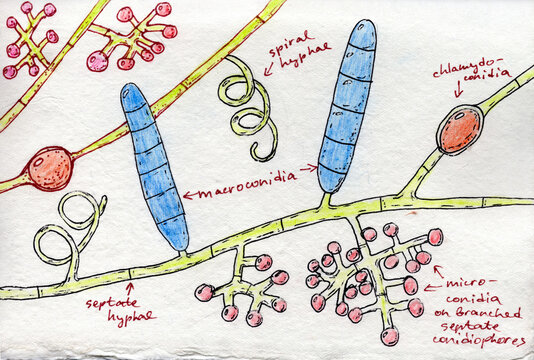 spiral
hyphae
chlamydo-
conidia
macroconidia
septate
hyphae
micro-
conidia
on branched
septate
conidiophores